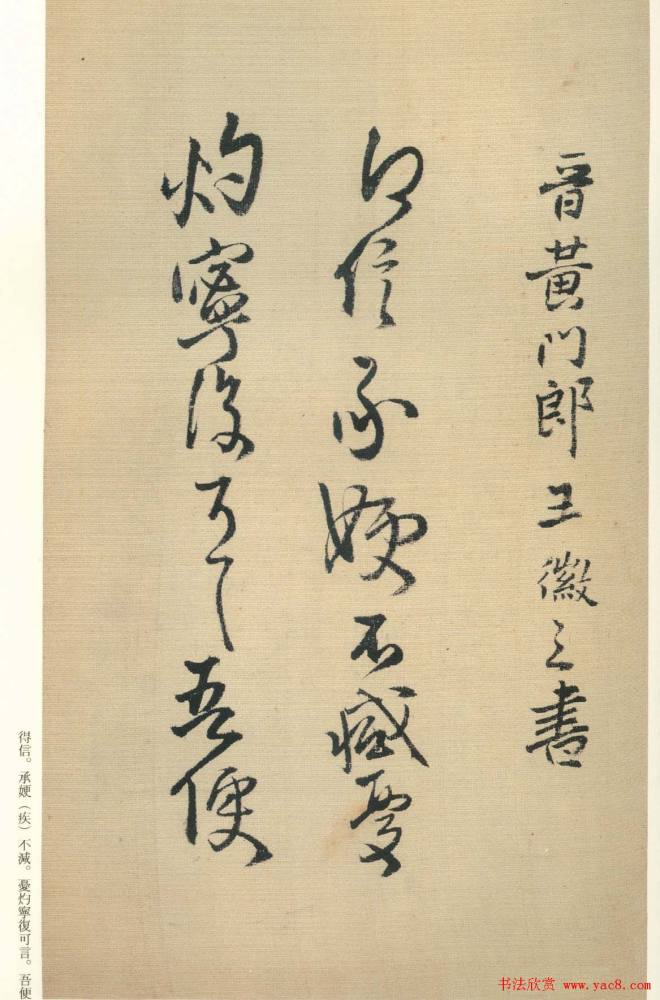 晋黄门郎王徽之書
得信承嫂不減憂
灼寧復可言吾便
得信。承嫂（疾）不減。憂灼寧復可言。吾便
书法欣赏 www.yac8.com